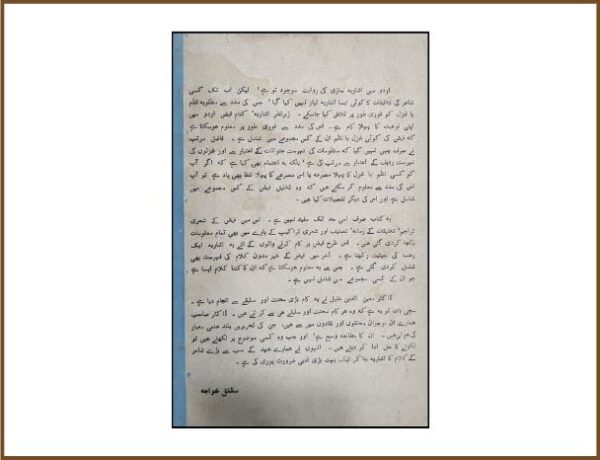 اردو میں اشاریہ سازی کی روایت موجود تو ہے ' لیکن اب تک کسی
شاعر کی تخلیقات کا کوئی ایسا اشاریہ تیار نہیں کیا گیا ' جس کی مدد سے مطلوبہ نظم
یا غزل کو فوری طور پر تلاش کیا جاسکے ۔ زیرنظر اشاریہ' کلام فیض اردو میں
اپنی نوعیت کا پہلا کام ہے ۔ اس کی مدد سے فوری طور پر معلوم ہوسکتا ہے
کہ فیض کی کوئی غزل یا نظم ان کے کس مجموعے میں شامل ہے ۔ فاضل مرتب
نے صرف یہی نہیں کیا کہ منظومات کی فہرست عنوانات کے اعتبار سے اور غزلوں کی
فہرست ردیف کے اعتبار سے مرتب کی ہے ' بلکہ یہ اهتمام بھی کیا ہے کہ اگر آپ
کو کسی نظم یا غزل کا پہلا مصرعہ یا اس مصرعے کا پہلا لفظ بھی یاد ہے تو آپ
اس کی مدد سے معلوم کر سکتے ہیں کہ وہ تخلیق فیض کے کس مجموعے میں
شامل ہے اور اس کی دیگر تفصیلات کیا ہیں ۔
یہ کتاب صرف اسی حد تک مفید نہیں ہے ۔ اس میں فیض کے شعری
تراجم' تخلیقات کے زمانہ' تصنیف اور شعری تراکیب کے بارے میں بھی تمام معلومات
یکجا کردی گئی ہیں ۔ اس طرح فیض پر کام کرنے والوں کے لئے یہ اشاریہ ایک
رهنما کی حیثیت رکھتا ہے ۔ آخر میں فیض کے غیر مدون کلام کی فہرست بھی
شامل کردی گئی ہے ۔ جس سے یہ معلوم ہوسکتا ہے کہ ان کا کتنا کلام ایسا ہے
جو ان کے کسی مجموعے میں شامل نہیں ہے ۔
ڈاکٹر معین الدین عقیل نے یہ کام بڑی محنت اور سلیقے سے انجام دیا ہے ۔
سچی بات تو یہ ہے کہ وہ ہر کام محنت اور سلیقے ہی سے کرتے ہیں ۔ ڈاکٹر صاحب
ہمارے ان نوجوان محققوں اور نقادوں میں سے ہیں، جن کی تحریریں بلند علمی معیار
کی ہوتی ہیں ۔ ان کا مطالعہ وسیع ہے' اور جب وہ کسی موضوع پر لکھتے ہیں تو
لکھنے کا حق ادا کر دیتے ہیں ۔ انہوں نے ہمارے عہد کے سب سے بڑے شاعر
کے کلام کا اشاریہ بنا کر ایک بہت بڑی ادبی ضرورت پوری کی ہے ۔
مشفق خواجہ